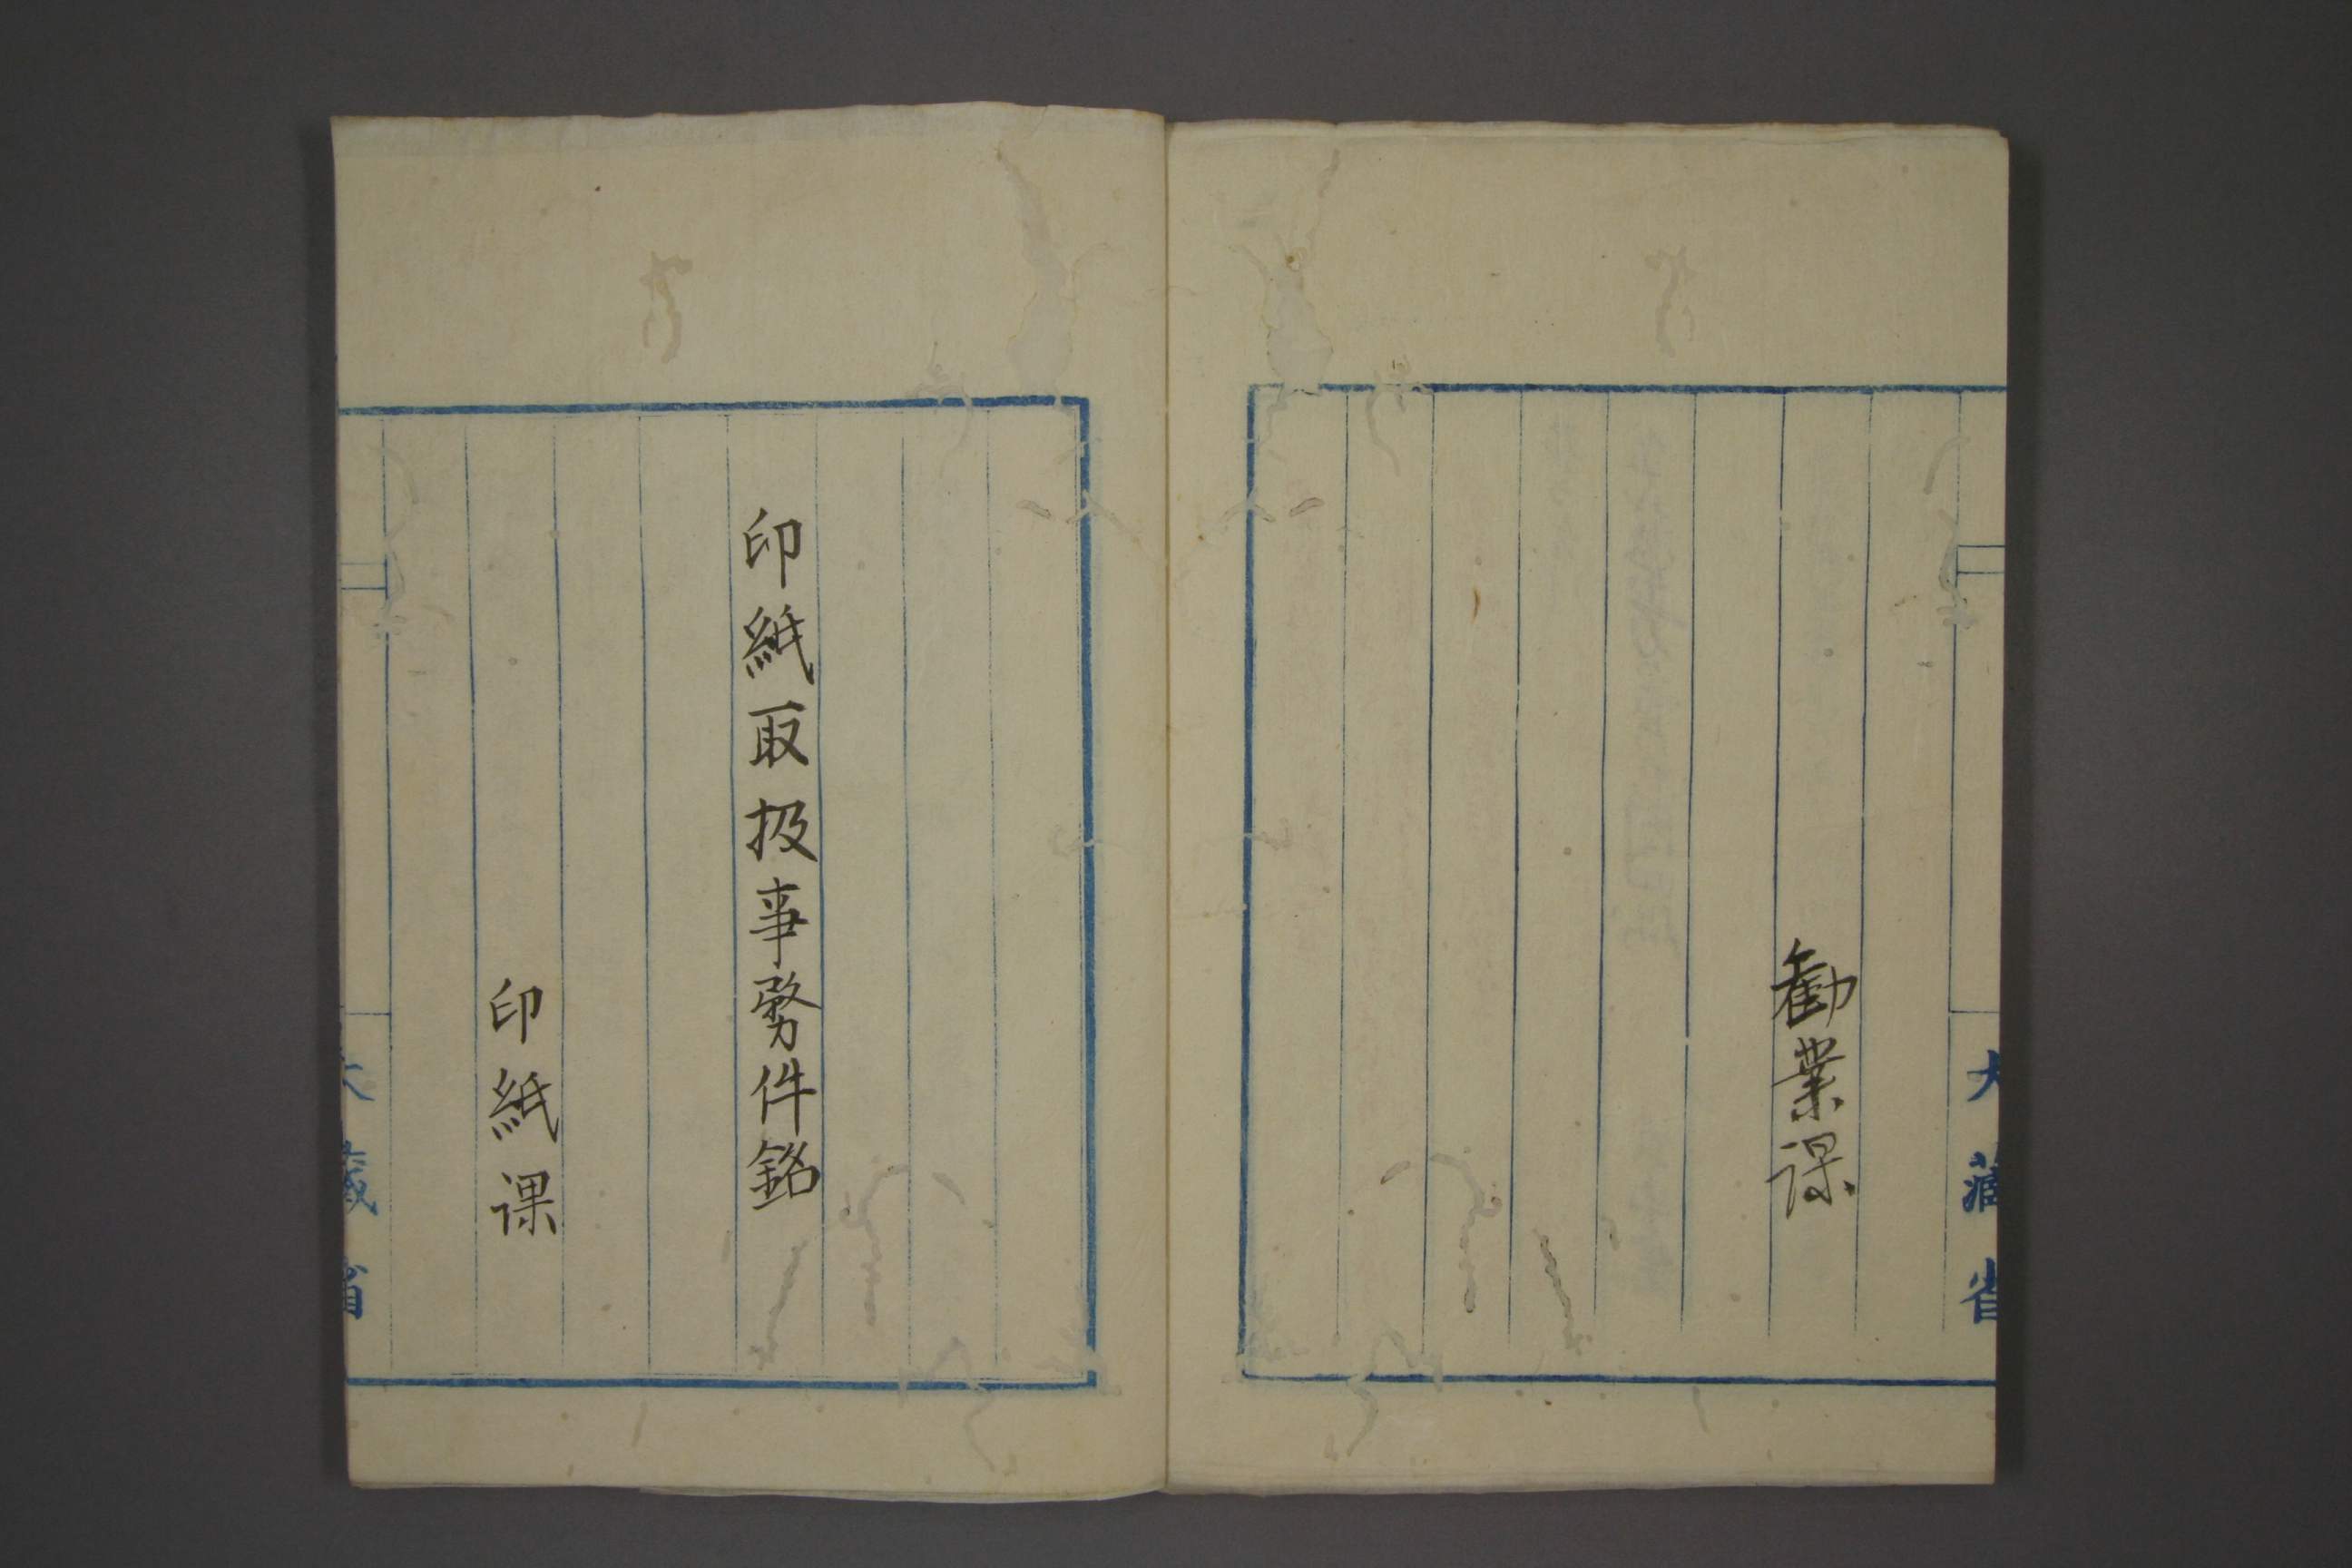 大藏省
勸業課
印紙取扱事務件銘
印紙課
大藏省